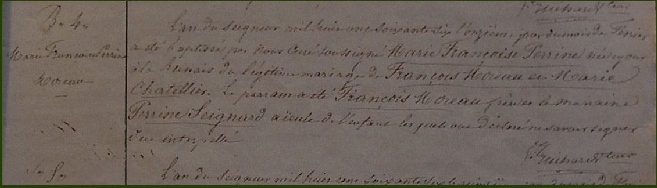 B. 4.
Marie Françoise Perrine
Moreau
L'an du seigneur mil huit cent soixante six l'onzième jour du mois de Février
a été baptisée par nous curé soussigné Marie Françoise Perrine née ce jour
à la du légitime mariage de François Moreau et Marie
Chatellier. Le parrain a été François Moreau frère et la marraine
Perrine Seignard aieule de l'enfant lesquels ont déclaré ne savoir signer
de ce interpellé
L'an du seigneur mil huit cent soixante six le